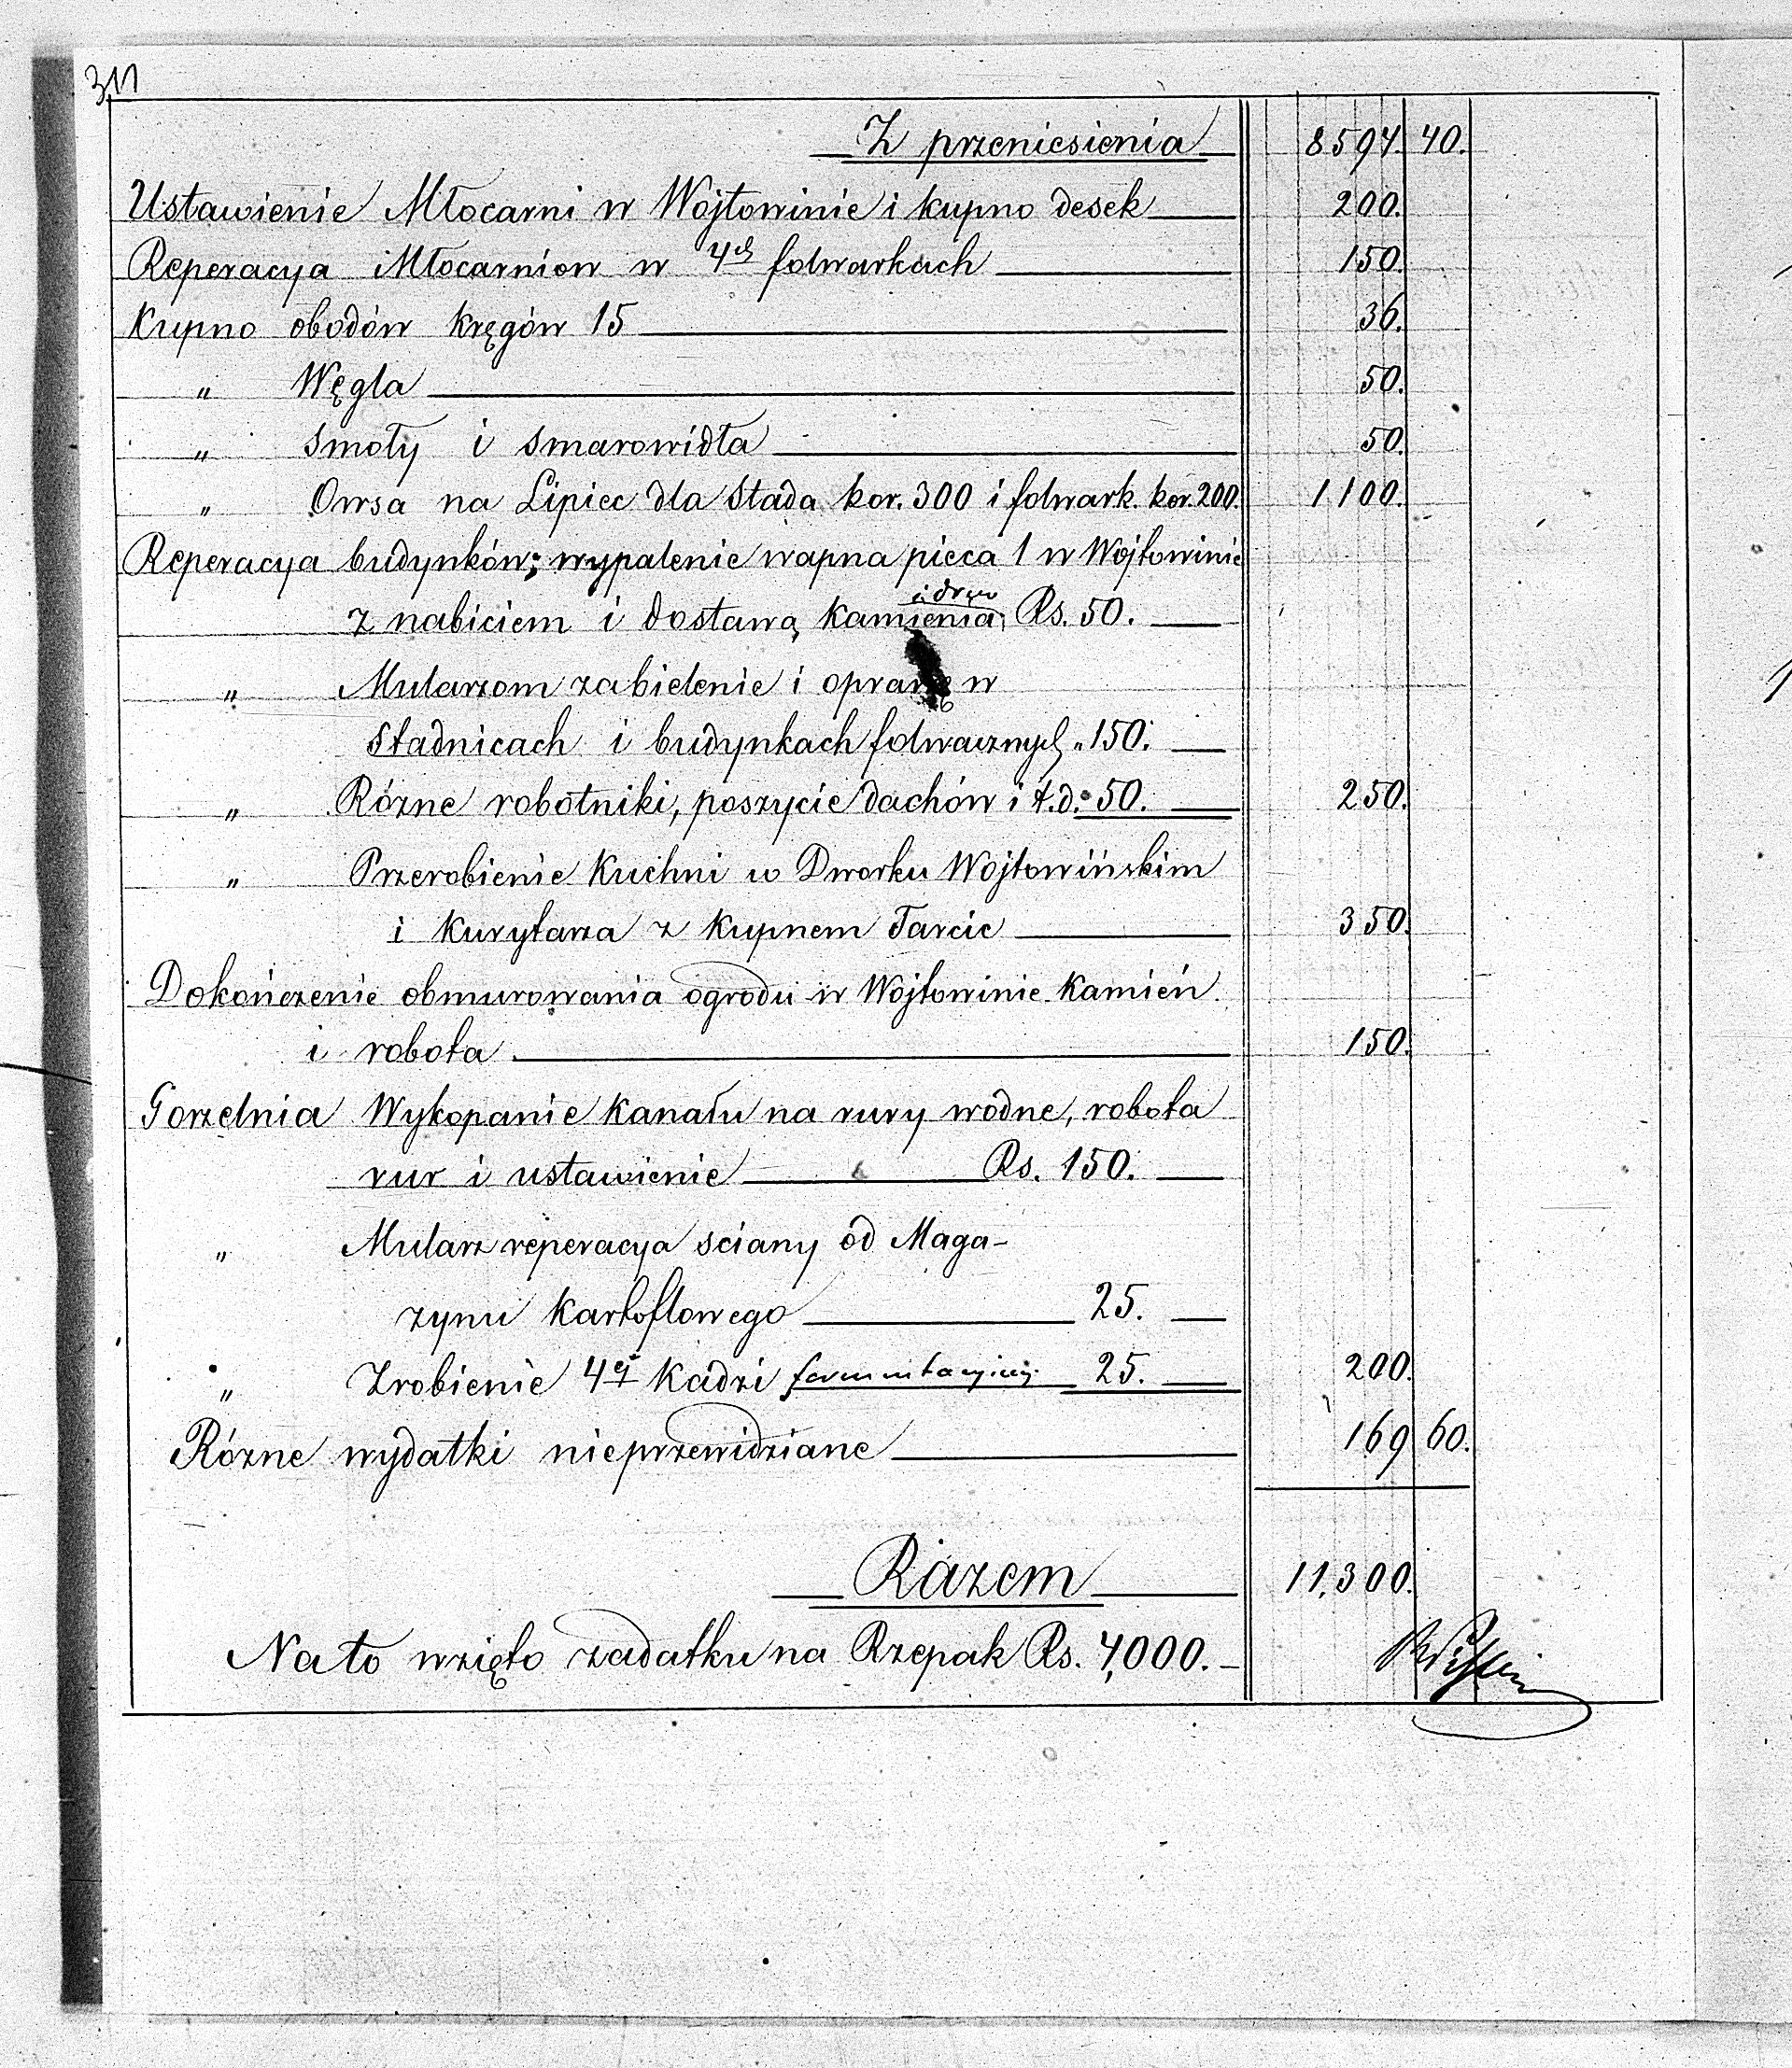 Z przeniesienia 8594. 40.
Ustawienie Młocarni w Wojtowinie i kupno desek 200.
Reperacya Młocarniow w 4ch folwarkach 150.
Kupno obodów kręgów 15 36.
„ Węgla 50.
„ Smoły i smarowidła 50.
„ Owsa na Lipiec dla Stada kor. 300 i folwark. kor. 200. 1100.
Reperacya budynków; wypalenie wapna pieca 1 w Wojtowinie
i drzew
z nabiciem i dostawą kamienia; Rs. 50.
„ Mularzom zabielenie i oprawę w
Stadnicach i budynkach folwacznych „ 150.
„ Rózne robotniki, poszycie dachów i t.d. „ 50. 250.
„ Przerobienie Kuchni w Dworku Wojtowińskim
i Kurytarza z kupnem Tarcic 350.
Dokończenie obmurowania ogrodu w Wojtowinie Kamień
i robota 150.
Gorzelnia Wykopanie Kanału na rury wodne, robota
rur i ustawienie Rs. 150.
„ Mularz reperacya sciany od Maga-
zynu Kartoflowego 25.
„ Zrobienie 4ej Kadzi fermentacyjnej 25. 200.
Rózne wydatki nieprzewidziane 169 60.
Razem 11,300.
Na to wzięto zadatku na Rzepak Rs. 4,000.